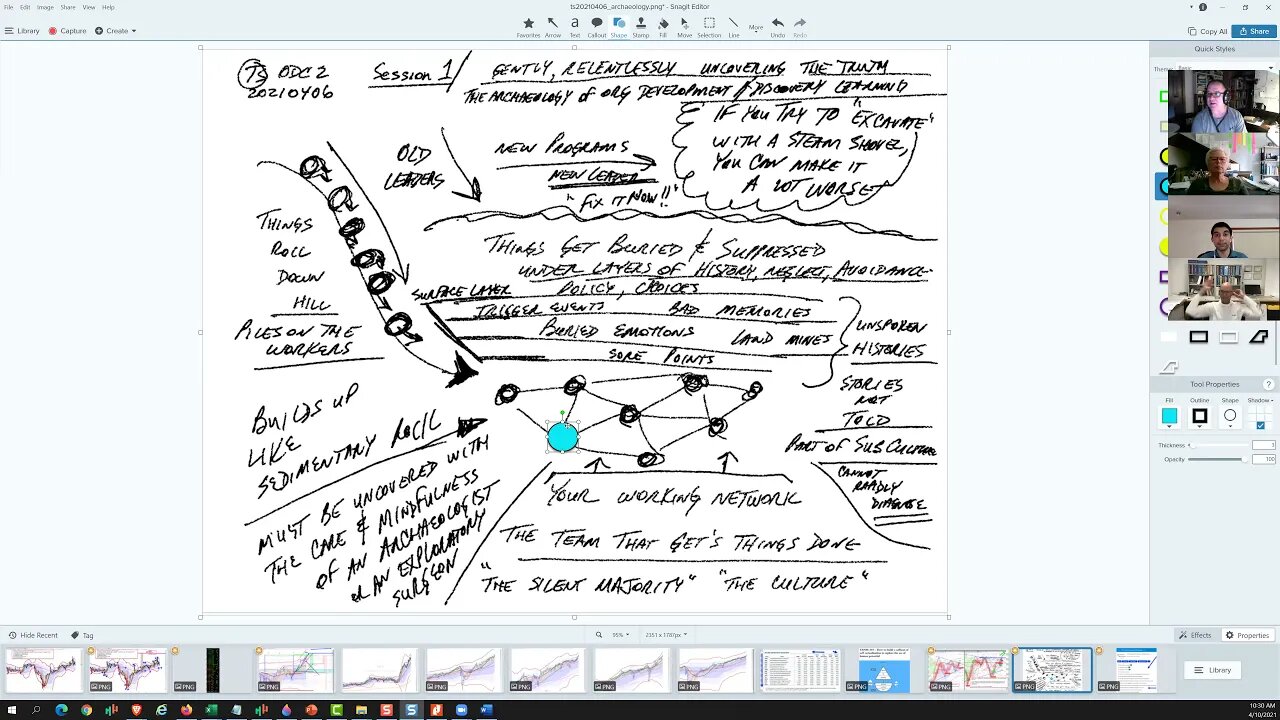 ts20210406_archaeology.png* - Snagit Editor
File Edit Image Share View Help
Library Capture Create
Favorites Arrow Text Callout Shape Stamp Fill Move Selection Line More Undo Redo
Copy All Share
Quick Styles
TS ODC 2
20210406
Session 1
GENTLY, RELENTLESSLY UNCOVERING THE TRUTH
THE ARCHAEOLOGY OF ORG DEVELOPMENT / DISCOVERY LEARNING
IF YOU TRY TO "EXCAVATE"
WITH A STEAM SHOVEL,
YOU CAN MAKE IT
A LOT WORSE!
OLD
LEADERS
NEW PROGRAMS
NEW LEADER
"FIX IT NOW!!"
THINGS
ROLL
DOWN
HILL
PILES ON THE
WORKERS
THINGS GET BURIED & SUPPRESSED
UNDER LAYERS OF HISTORY, NEGLECT, AVOIDANCE
SURFACE LAYER POLICY, CHOICES
TRIGGER EVENTS BAD MEMORIES
BURIED EMOTIONS LAND MINES
SORE POINTS
UNSPOKEN
HISTORIES
STORIES
NOT
TOLD
PART OF SUBCULTURE
CANNOT
READILY
DIAGNOSE
BUILDS UP
LIKE
SEDIMENTARY ROCK
MUST BE UNCOVERED WITH
THE CARE & MINDFULNESS
OF AN ARCHAEOLOGIST
OR AN EXPLORATORY
SURGEON
YOUR WORKING NETWORK
THE TEAM THAT GET'S THINGS DONE
"THE SILENT MAJORITY" "THE CULTURE"
Tool Properties
Fill Outline Shape Shadow
Thickness
Opacity 100
Hide Recent Tag
95% 2351 x 1787px
Effects Properties
PNG
PNG
PNG
PNG
PNG
PNG
PNG
PNG
Library
10:30 AM
4/10/2021